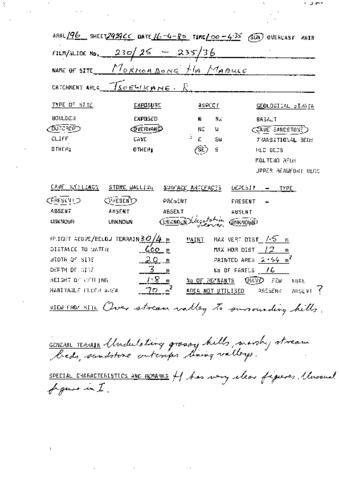 ARAL 196 SHEET 2929CC DATE 16-4-80 TIME 1100-1435 SUN OVERCAST RAIN
FILM/SLIDE No. 230/25 – 235/36
NAME OF SITE MOKHOABONG HA MABULE
CATCHMENT AREA TSOELIKANE. R.
TYPE OF SITE EXPOSURE ASPECT GEOLOGICAL STRATA
BOULDER EXPOSED N NW BASALT
OUTCROP OVERHANG NE W CAVE SANDSTONE
CLIFF CAVE E SW TRANSITIONAL BEDS
OTHER: OTHER: SE S RED BEDS
MOLTENO BEDS
UPPER BEAUFORT BEDS
CAVE DWELLINGS STONE WALLING SURFACE ARTEFACTS DEPOSIT – TYPE
PRESENT PRESENT PRESENT PRESENT –
ABSENT ABSENT ABSENT ABSENT
UNKNOWN UNKNOWN UNKNOWN Vegetation cover UNKNOWN
HEIGHT ABOVE/BELOW TERRAIN 30/4 m PAINT MAX VERT DIST 1.5 m
DISTANCE TO WATER 600 m MAX HOR DIST 12 m
WIDTH OF SITE 20 m PAINTED AREA 2.44 m²
DEPTH OF SITE 3 m No OF PANELS 16
HEIGHT OF CEILING 1.8 m No OF REMNANTS MANY FEW NONE
HABITABLE FLOOR AREA 70 m² AREA NOT UTILISED PRESENT ABSENT ?
VIEW FROM SITE Over stream valley to surrounding hills.
GENERAL TERRAIN Undulating grassy hills, marshy stream
beds, sandstone outcrops lining valleys.
SPECIAL CHARACTERISTICS AND REMARKS H has very clear figures. Unusual
figure in I.